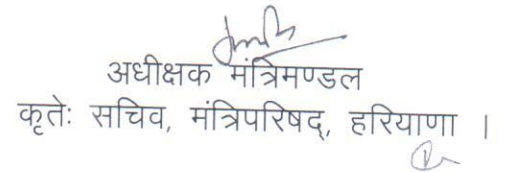 अधीक्षक मंत्रिमण्डल
कृतेः सचिव, मंत्रिपरिषद्, हरियाणा ।